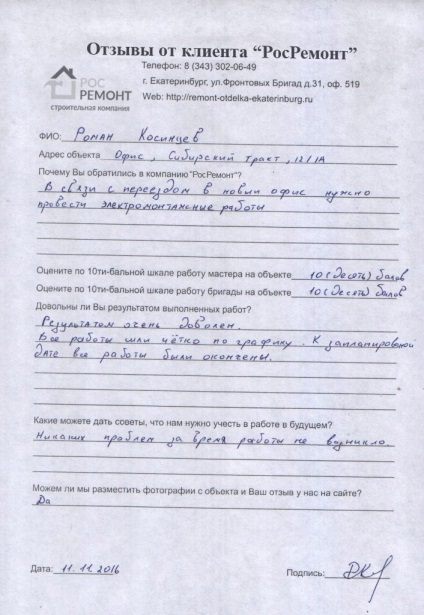 Отзывы от клиента "РосРемонт"
РОС
РЕМОНТ
строительная компания
Телефон: 8 (343) 302-06-49
г. Екатеринбург, ул.Фронтовых Бригад д.31, оф. 519
Web: http://remont-otdelka-ekaterinburg.ru
ФИО: Роман Косинцев
Адрес объекта Офис, Сибирский тракт, 12/1А
Почему Вы обратились в компанию "РосРемонт"?
В связи с переездом в новый офис нужно
провести электромонтажные работы
Оцените по 10ти-бальной шкале работу мастера на объекте 10 (десять) балов
Оцените по 10ти-бальной шкале работу бригады на объекте 10 (десять) балов
Довольны ли Вы результатом выполненных работ?
Результатом очень доволен.
Все работы шли чётко по графику. К запланированой
дате все работы были окончены.
Какие можете дать советы, что нам нужно учесть в работе в будущем?
Никаких проблем за время работы не возникло
Можем ли мы разместить фотографии с объекта и Ваш отзыв у нас на сайте?
Да
Дата: 11.11.2016 Подпись: